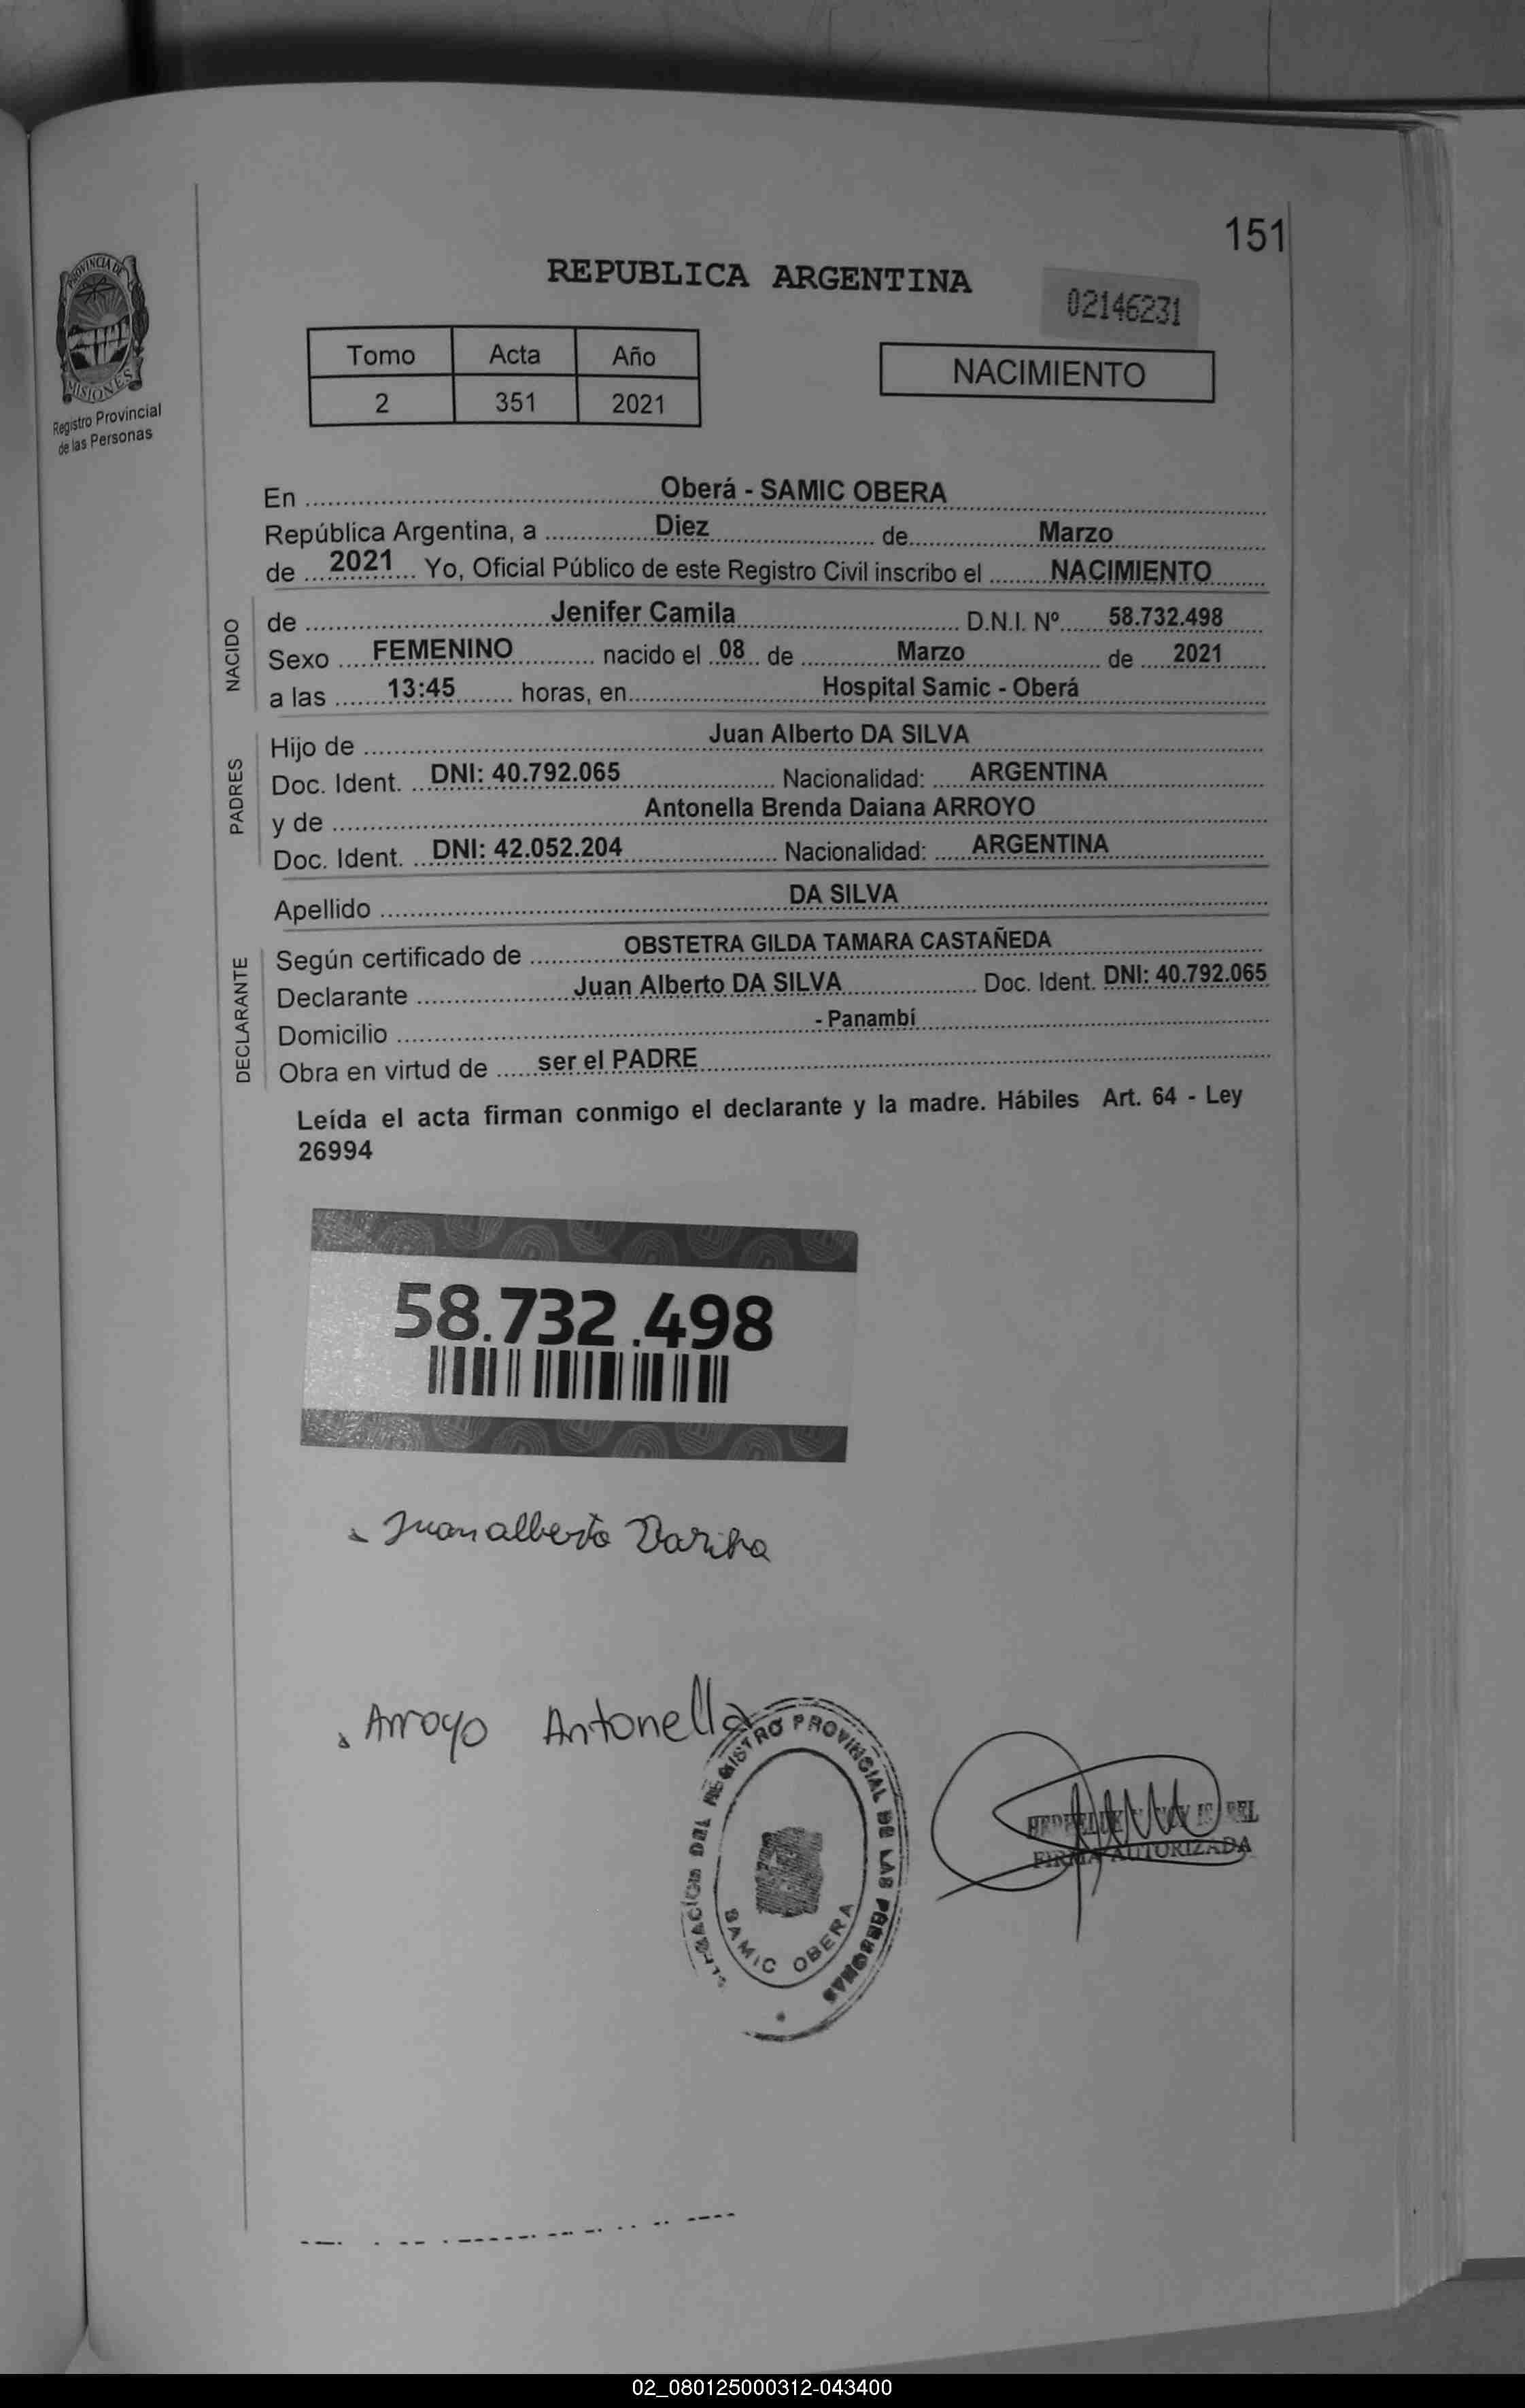 151
REPUBLICA ARGENTINA
02146231
PROVINCIA DE
MISIONES
Registro Provincial
de las Personas
Tomo Acta Año
2 351 2021
NACIMIENTO
En Oberá - SAMIC OBERA
República Argentina, a Diez de Marzo
de 2021 Yo, Oficial Público de este Registro Civil inscribo el NACIMIENTO
NACIDO
de Jenifer Camila D.N.I. Nº 58.732.498
Sexo FEMENINO nacido el 08 de Marzo de 2021
a las 13:45 horas, en Hospital Samic - Oberá
PADRES
Hijo de Juan Alberto DA SILVA
Doc. Ident. DNI: 40.792.065 Nacionalidad: ARGENTINA
y de Antonella Brenda Daiana ARROYO
Doc. Ident. DNI: 42.052.204 Nacionalidad: ARGENTINA
Apellido DA SILVA
DECLARANTE
Según certificado de OBSTETRA GILDA TAMARA CASTAÑEDA
Declarante Juan Alberto DA SILVA Doc. Ident. DNI: 40.792.065
Domicilio - Panambí
Obra en virtud de ser el PADRE
Leída el acta firman conmigo el declarante y la madre. Hábiles Art. 64 - Ley
26994
58.732.498
Juan alberto
Arroyo Antonella
DEL REGISTRO PROVINCIAL DE LAS PERSONAS
SAMIC OBERA
FIRMA AUTORIZADA
02_080125000312-043400